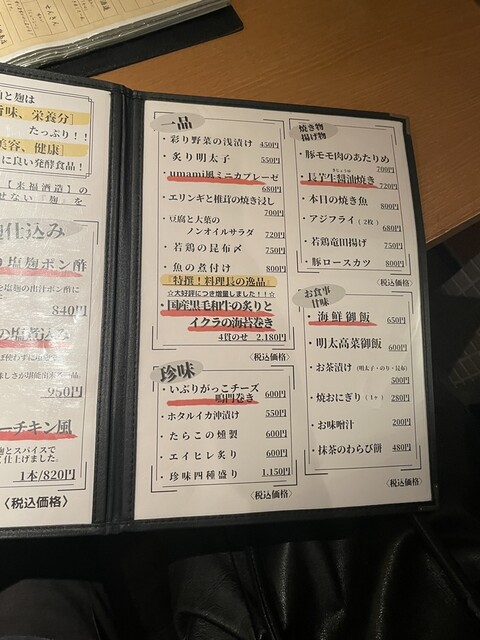 麹は
旨味、栄養分]
たっぷり！！
美容、健康]
に良い発酵食品！
【来福酒造】の
せない『麹』を
仕込み
塩麹ポン酢
840円
の塩煮込み
950円
ーチキン風
麹とスパイスで
仕上げました。
1本/820円
〈税込価格〉
一品
・彩り野菜の浅漬け 450円
・炙り明太子 550円
・umami風ミニカプレーゼ
680円
・エリンギと椎茸の焼き浸し
700円
・豆腐と大葉の
ノンオイルサラダ 720円
・若鶏の昆布〆 750円
・魚の煮付け 800円
『特撰！料理長の逸品』
☆大好評につき増量しました！！☆
・国産黒毛和牛の炙りと
イクラの海苔巻き
4貫のせ 2,180円
〈税込価格〉
珍味
・いぶりがっこチーズ
鳴門巻き 600円
・ホタルイカ沖漬け 550円
・たらこの燻製 600円
・エイヒレ炙り 600円
・珍味四種盛り 1,150円
〈税込価格〉
焼き物
揚げ物
・豚モモ肉のあたりめ
700円
・長芋生醤油焼き 720円
・本日の焼き魚 800円
・アジフライ（2枚） 680円
・若鶏竜田揚げ 750円
・豚ロースカツ 800円
〈税込価格〉
お食事
甘味
・海鮮御飯 600円
・明太高菜御飯 600円
・お茶漬け（明太子・のり・昆布）
500円
・焼おにぎり（1ヶ） 280円
・お味噌汁 200円
・抹茶のわらび餅 480円
〈税込価格〉